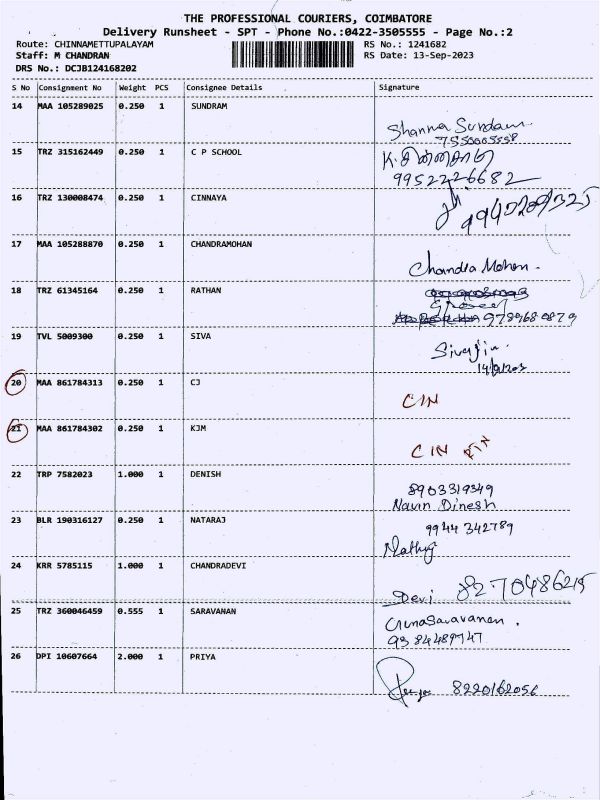 THE PROFESSIONAL COURIERS, COIMBATORE
Delivery Runsheet - SPT - Phone No.:0422-3505555 - Page No.:2
Route: CHINNAMETTUPALAYAM RS No.: 1241682
Staff: M CHANDRAN RS Date: 13-Sep-2023
DRS No.: DCJB124168202
S No Consignment No Weight PCS Consignee Details Signature
14 MAA 105289025 0.250 1 SUNDRAM
Shanma Sundam
15 TRZ 315162449 0.250 1 C P SCHOOL
9952226682
16 TRZ 130008474 0.250 1 CINNAYA
9940209325
17 MAA 105288870 0.250 1 CHANDRAMOHAN
Chandra Mohan.
18 TRZ 61345164 0.250 1 RATHAN
9789680879
19 TVL 5009300 0.250 1 SIVA
20 MAA 861784313 0.250 1 CJ
CIN
21 MAA 861784302 0.250 1 KJM
CIN
22 TRP 7582023 1.000 1 DENISH
8903319349
Navin Dinesh
23 BLR 190316127 0.250 1 NATARAJ
9944 342789
24 KRR 5785115 1.000 1 CHANDRADEVI
Devi 8270486215
25 TRZ 360046459 0.555 1 SARAVANAN
GunaSaravanan.
9384489747
26 DPI 10607664 2.000 1 PRIYA
8220162056